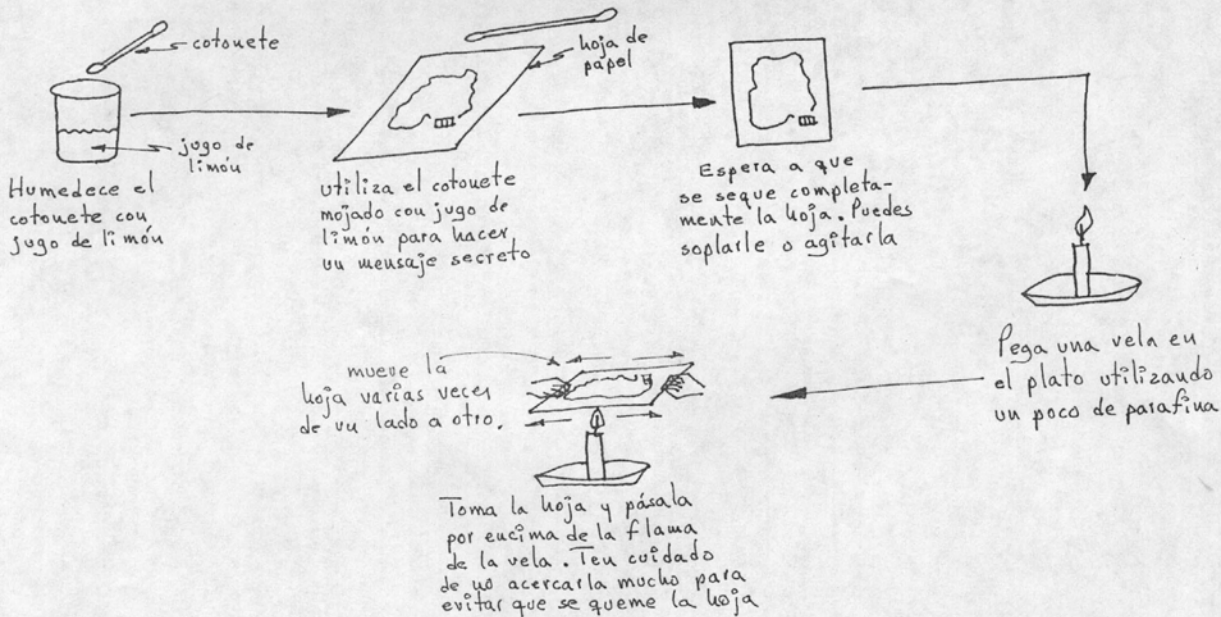 cotonete
jugo de
limón
Humedece el
cotonete con
jugo de limón
hoja de
papel
utiliza el cotonete
mojado con jugo de
limón para hacer
un mensaje secreto
Espera a que
se seque completa-
mente la hoja. Puedes
soplarle o agitarla
Pega una vela en
el plato utilizando
un poco de parafina
mueve la
hoja varias veces
de un lado a otro.
Toma la hoja y pásala
por encima de la flama
de la vela. Ten cuidado
de no acercarla mucho para
evitar que se queme la hoja